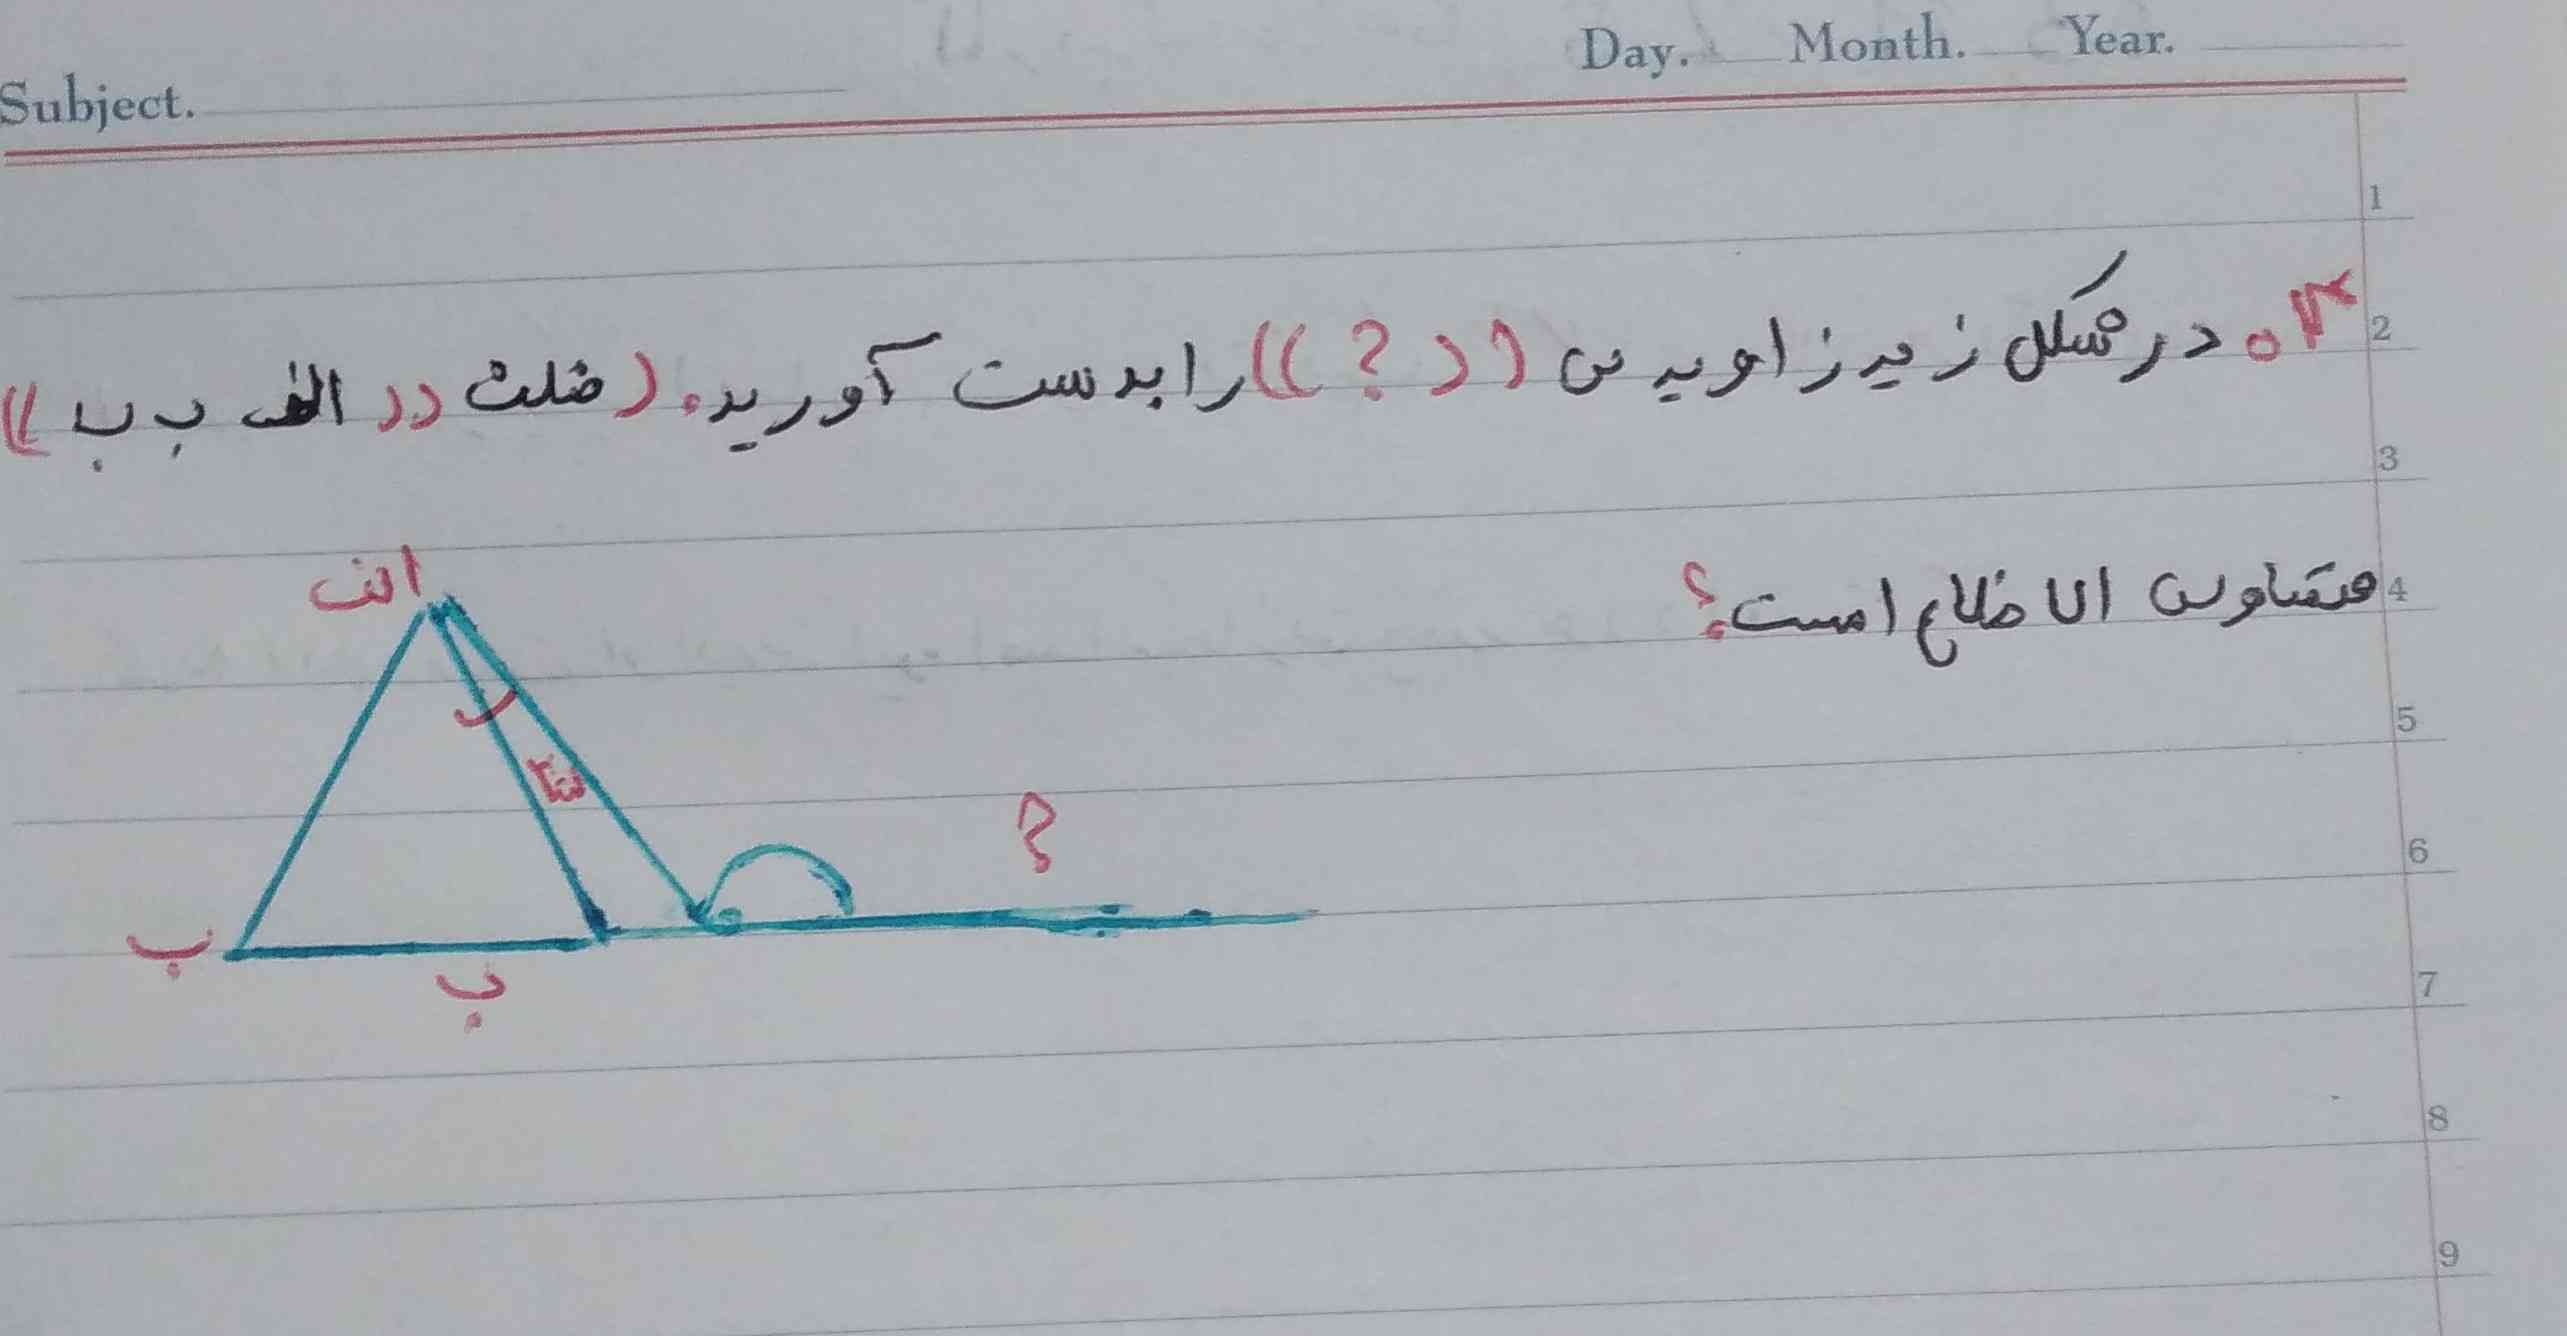 Subject. Day. Month. Year.
1
۳. در شکل زیر زاویه ی ((?)) را بدست آورید. (مثلث ((الف ب پ)) 2
3
متساوی الاضلاع است؟ 4
الف
5
؟
6
ب
پ
7
8
9